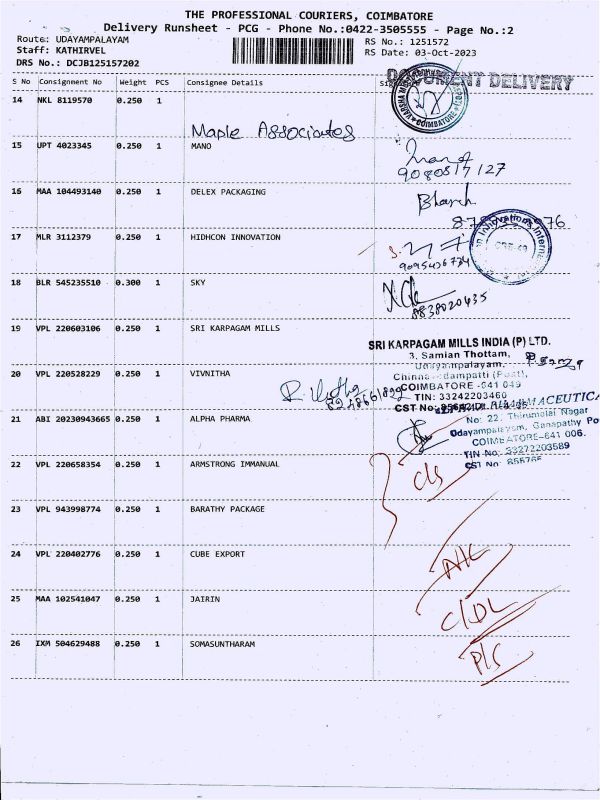 THE PROFESSIONAL COURIERS, COIMBATORE
Delivery Runsheet - PCG - Phone No.:0422-3505555 - Page No.:2
Route: UDAYAMPALAYAM
RS No.: 1251572
Staff: KATHIRVEL
RS Date: 03-Oct-2023
DRS No.: DCJB125157202
S No Consignment No Weight PCS Consignee Details
DOCUMENT DELIVERY
14 NKL 8119570 0.250 1
COIMBATORE
Maple Associates
15 UPT 4023345 0.250 1 MANO
9080817127
16 MAA 104493140 0.250 1 DELEX PACKAGING
Bharath
17 MLR 3112379 0.250 1 HIDHCON INNOVATION
Innovations International
18 BLR 545235510 0.300 1 SKY
8838020435
19 VPL 220603106 0.250 1 SRI KARPAGAM MILLS
SRI KARPAGAM MILLS INDIA (P) LTD.
3, Samian Thottam,
Udayampalayam,
20 VPL 220528229 0.250 1 VIVNITHA
COIMBATORE-641 049
TIN: 33242203460
CST No:
21 ABI 20230943665 0.250 1 ALPHA PHARMA
No: 22, Thirumalai Nagar
Udayampalayam, Ganapathy Po
COIMBATORE-641 006.
TIN No: 33272203589
CST No: 855765
22 VPL 220658354 0.250 1 ARMSTRONG IMMANUAL
C/s
23 VPL 943998774 0.250 1 BARATHY PACKAGE
24 VPL 220402776 0.250 1 CUBE EXPORT
25 MAA 102541047 0.250 1 JAIRIN
C/DL
26 IXM 504629488 0.250 1 SOMASUNTHARAM
P/S